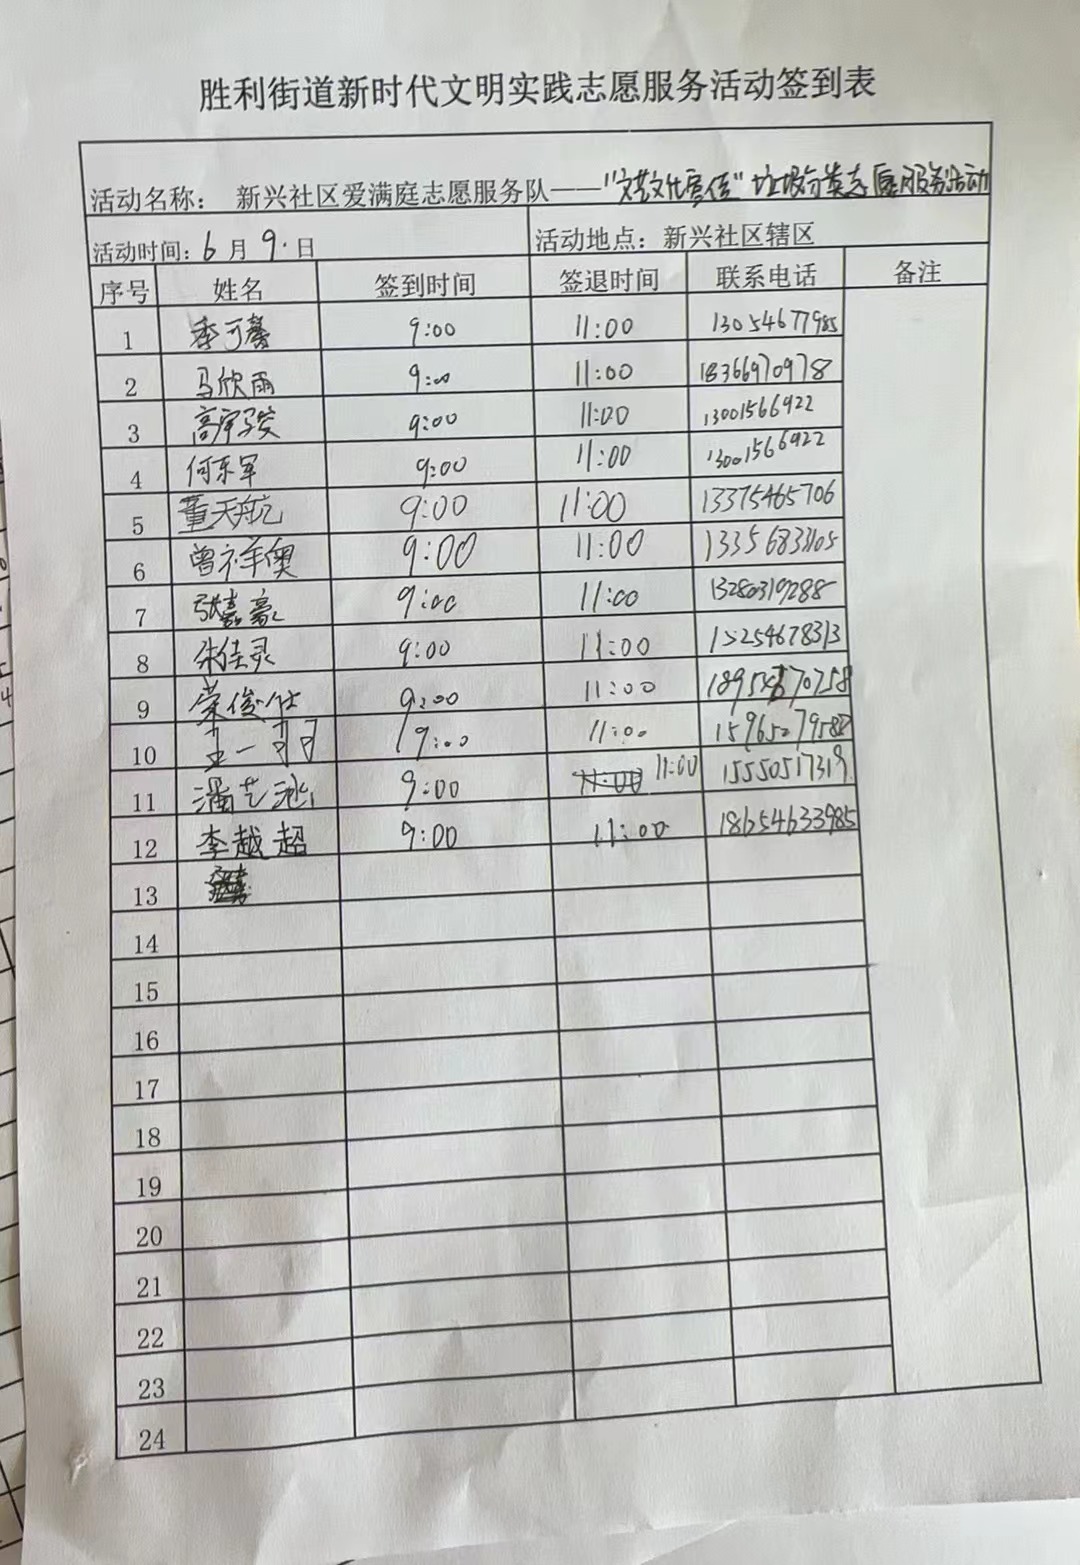 胜利街道新时代文明实践志愿服务活动签到表
活动名称： 新兴社区爱满庭志愿服务队——“文艺文化宣传”垃圾分类志愿服务活动
活动时间：6月9.日 活动地点：新兴社区辖区
序号 姓名 签到时间 签退时间 联系电话 备注
1 季可馨 9:00 11:00 13054677985
2 马欣雨 9:00 11:00 18366970978
3 高宇骏 9:00 11:00 13001566922
4 何东军 9:00 11:00 13001566922
5 董天航 9:00 11:00 13375465706
6 曾祥奥 9:00 11:00 13356833105
7 张嘉豪 9:00 11:00 13280319288
8 朱佳灵 9:00 11:00 15254678313
9 荣俊 9:00 11:00
10 王一 9:00 11:00
11 潘艺 9:00 11:00 15550517319
12 李越超 9:00 11:00 18654633985
13
14
15
16
17
18
19
20
21
22
23
24